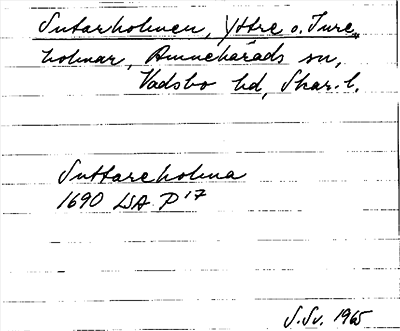 Sutarholmen, Yttre o. Inre,
holmar, Amnehärads sn,
Vadsbo hd, Skar. l.
Suttareholma
1690 LSA P 17
S.Sv. 1965